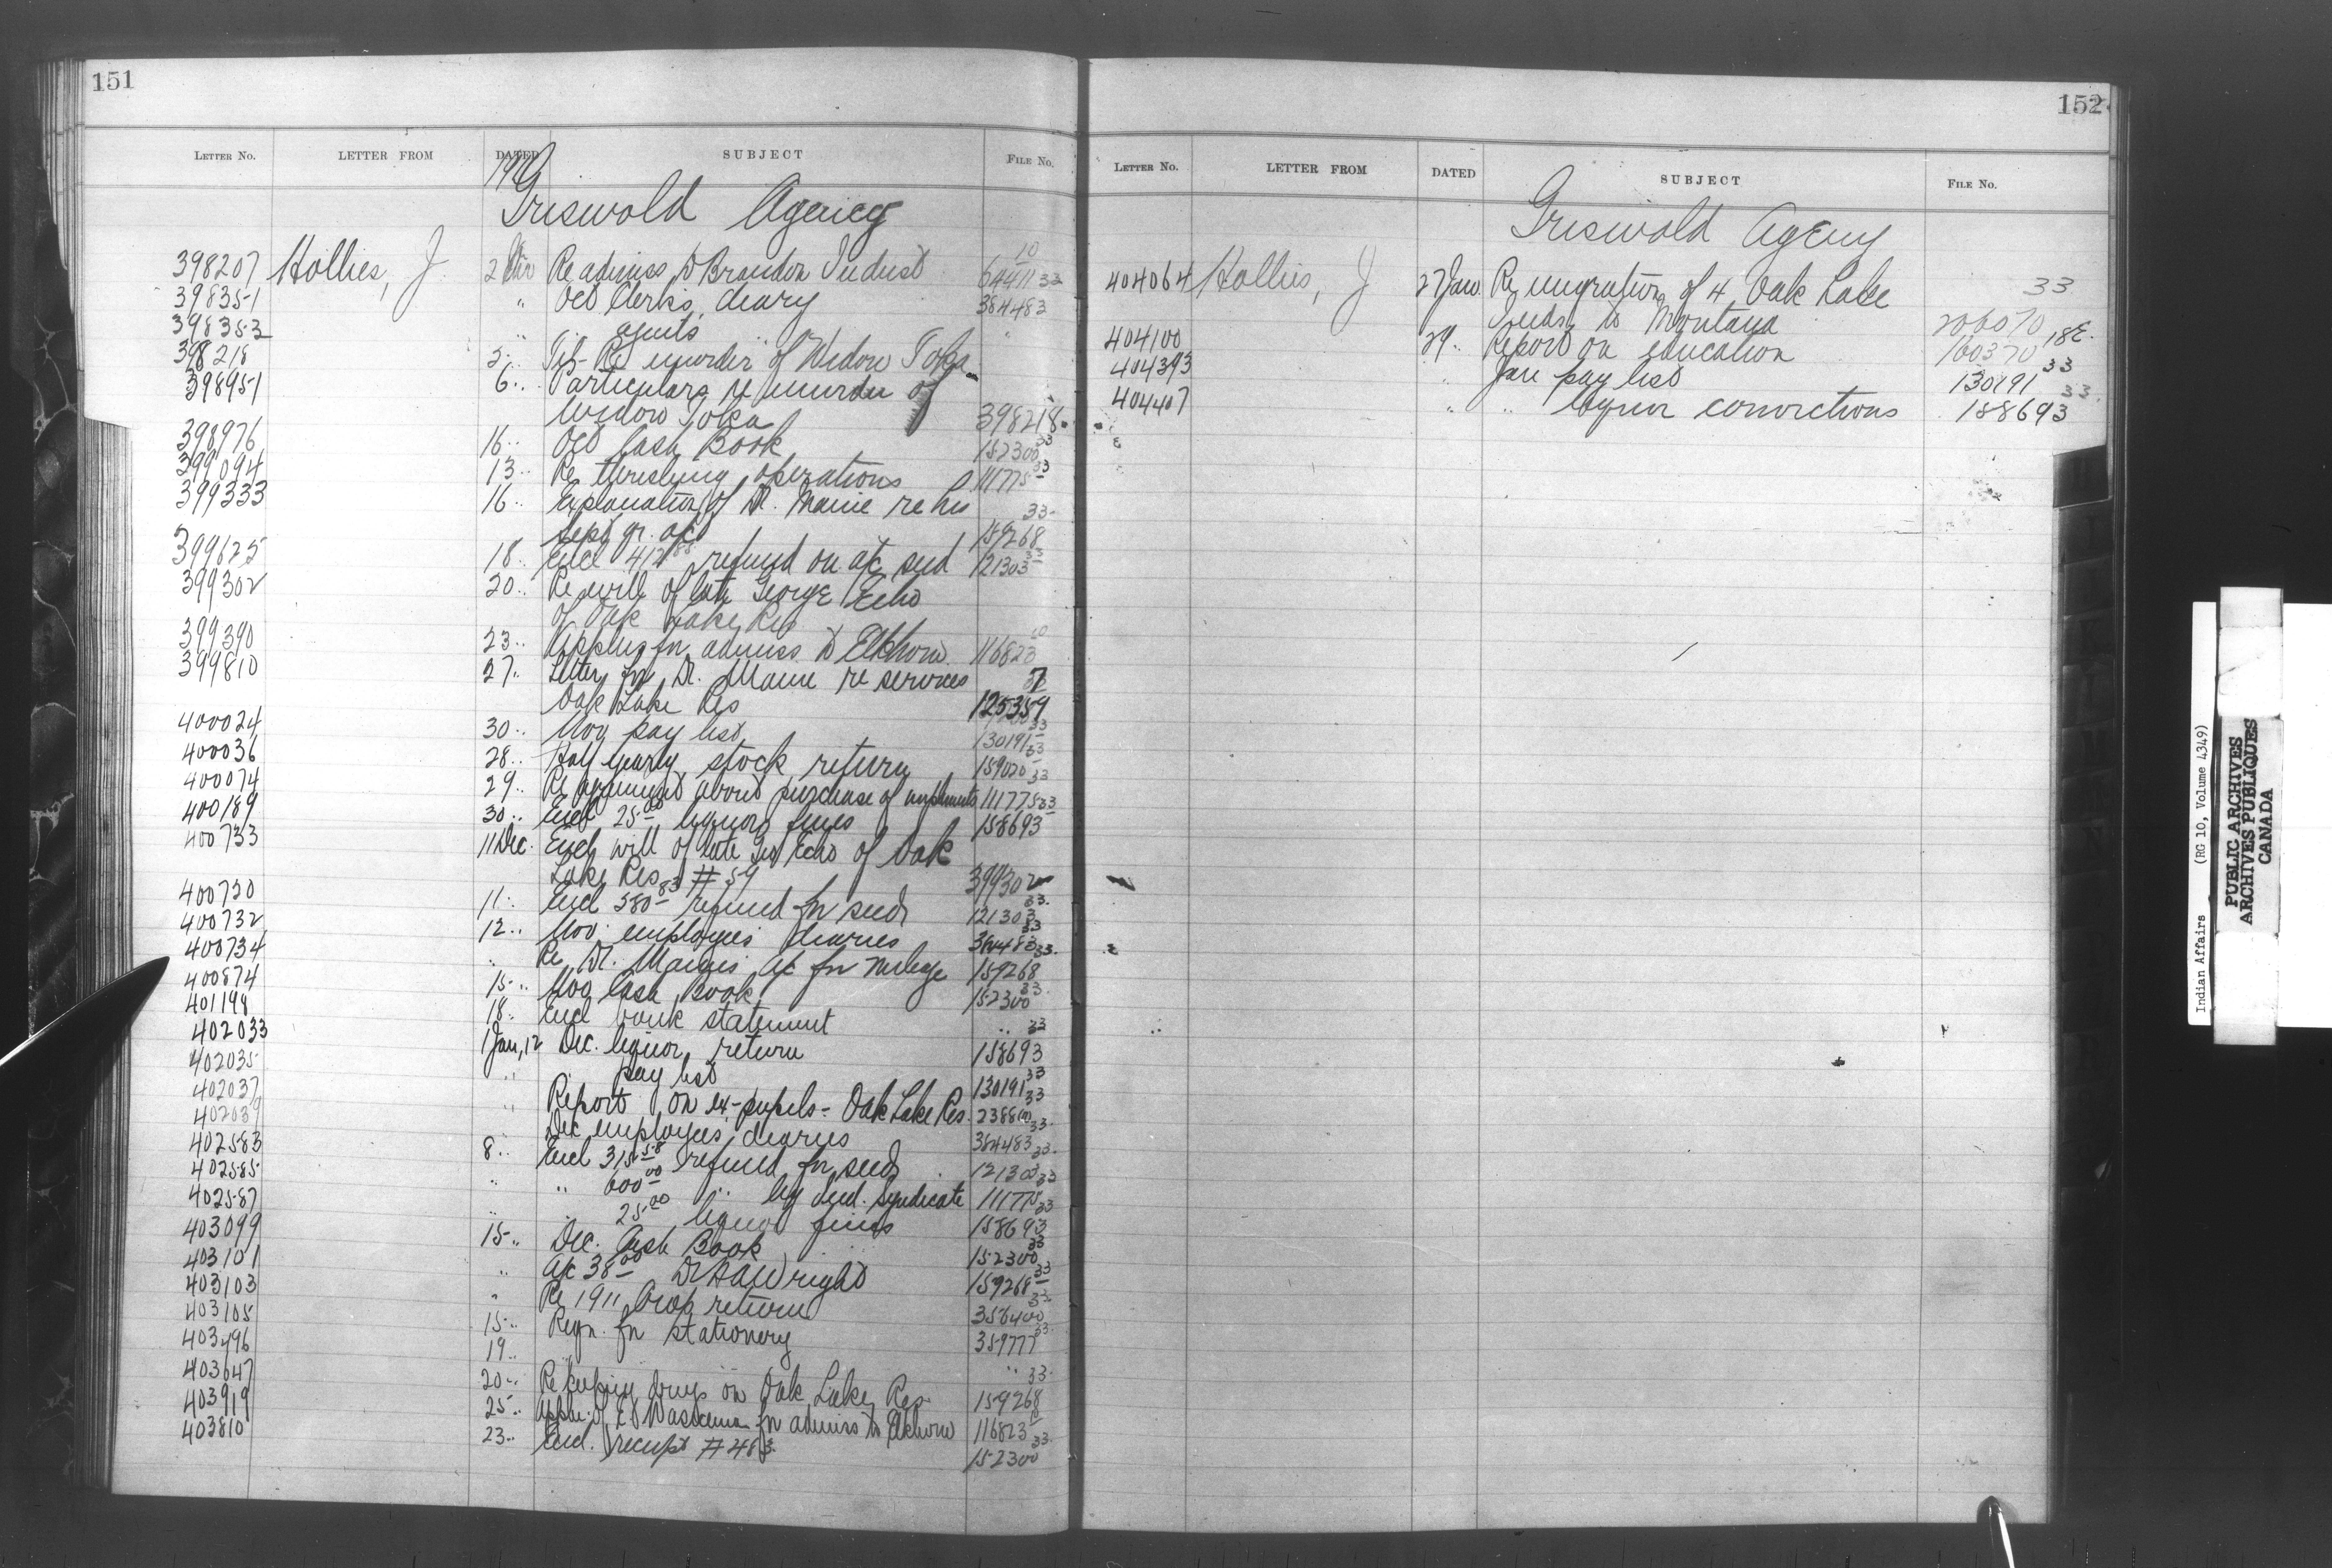 151
LETTER No. LETTER FROM DATED SUBJECT FILE No.
Griswold Agency
398207 Hollies, J. 2 Nov Re admiss to Brandon Indust 10 64411 33
398351 " Oct Clerks, diary 364483
398352 " agents "
398218 5 " Tel- Re murder of Widow Toka
398951 6 " Particulars re murder of
Widow Toka 398218
398976 16 " Oct Cash Book 152300 33
399094 13 " Re threshing operations 111775 33
399333 16 " Explanation of Dr. Maine re his 33
Sept qr. a/c 159268
399625 18 " Encl 412 88 refund on a/c seed 121303 33
399302 20 " Re will of late George Echo
of Oak Lake Res
399390 23 " Applns for admiss to Elkhorn 116823 10
399810 27 " Letter fm Dr. Maine re services 7
Oak Lake Res 125359
400024 30 " Nov pay list 130191 33
400036 28 " Half yearly stock return 159020 33
400074 29 " Re agreement about purchase of implements 111775 33
400189 30 " Encl 25 00 liquor fines 158693 33
400733 11 Dec. Encl will of late Geo Echo of Oak
Lake Res # 59 399302
400720 11 " Encl 580 83 refund for seed 121303 33
400732 12 " Nov. employees diaries 364483 33
400734 " Re Dr. Maines a/c for mileage 159268 33
400874 15 " Nov Cash Book 152300 33
401198 18 " Encl bank statement " 33
402033 1 Jan, 12 Dec. liquor return 158693 33
402035 " pay list 130191 33
402037 " Report on ex-pupils - Oak Lake Res. 33
402039 " Dec employees diaries 364483 33
402583 8 " Encl 315 58 refund for seed 121303 33
402585 " " 600 00 " by Ind. Syndicate 111775 33
402587 " " 25 00 liquor fines 158693 33
403099 15 " Dec. Cash Book 152300 33
403101 " A/c 38 00 Dr H A Wright 159268 33
403103 " Re 1911 Crop return 356400 33
403105 15 " Reqn. for stationery 359777 33
403496 19 " " " 33
403647 20 " Re keeping drugs on Oak Lake Res 159268
403919 25 " Appln. of for admiss to Elkhorn 116823 10
403810 23 " Encl. receipt # 483 152300 33
152
LETTER No. LETTER FROM DATED SUBJECT FILE No.
Griswold Agency
404064 Hollies, J 27 Jan Re migration of 4 Oak Lake 33
Inds to Montana 206070
404100 29 " Report on education 160370 18E.
404393 " Jan pay list 130191 33
404407 " " liquor convictions 158693 33
Indian Affairs (RG 10, Volume 4349)
PUBLIC ARCHIVES
ARCHIVES PUBLIQUES
CANADA